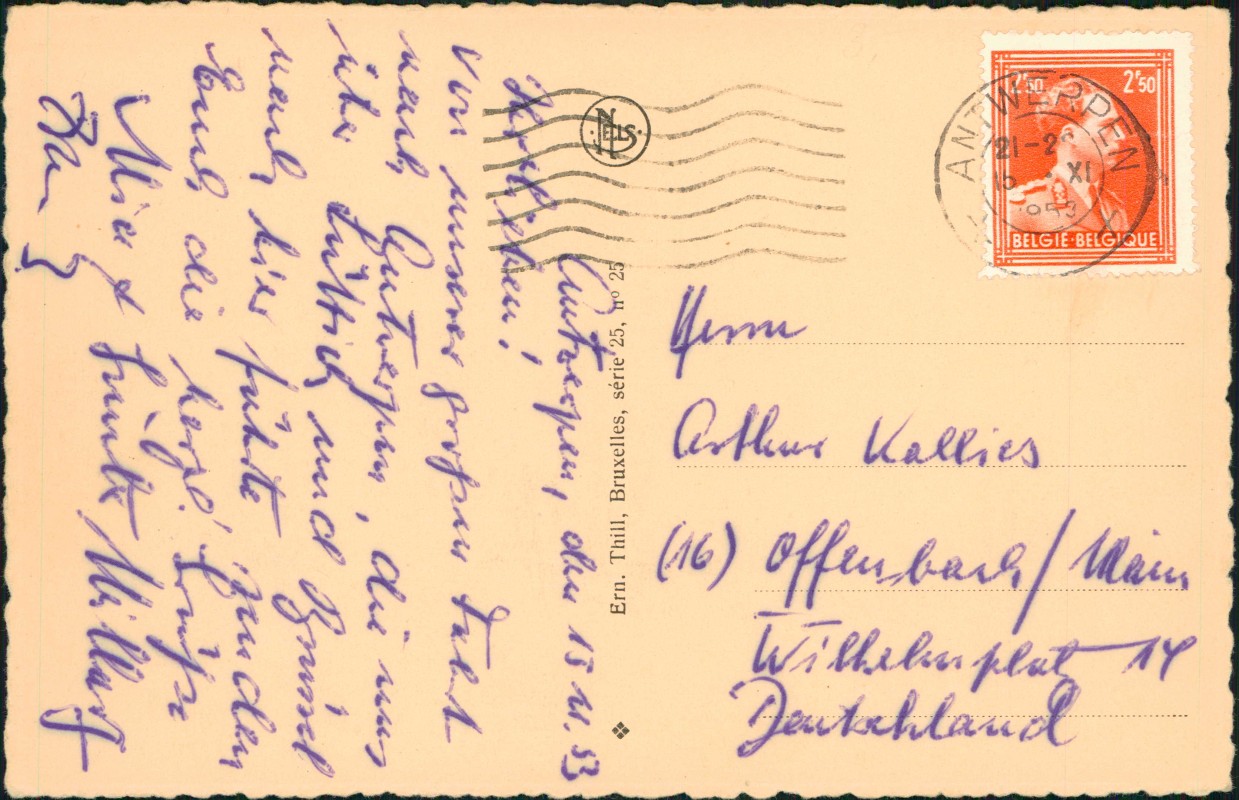 Antwerpen, den 15.11.53
Lieben!
Von unserer grossen Fahrt
nach Antwerpen, die uns
über Lüttich und Brüssel
nach hier führte senden
Euch die herzl. Grüße
&
NELS
Ern. Thill, Bruxelles, série 25, nº 25
2F50 2F50
BELGIE·BELGIQUE
ANTWERPEN
21-2
XI
1953
X
Herrn
Arthur Kallies
(16) Offenbach/Main
Wilhelmplatz 14
Deutschland